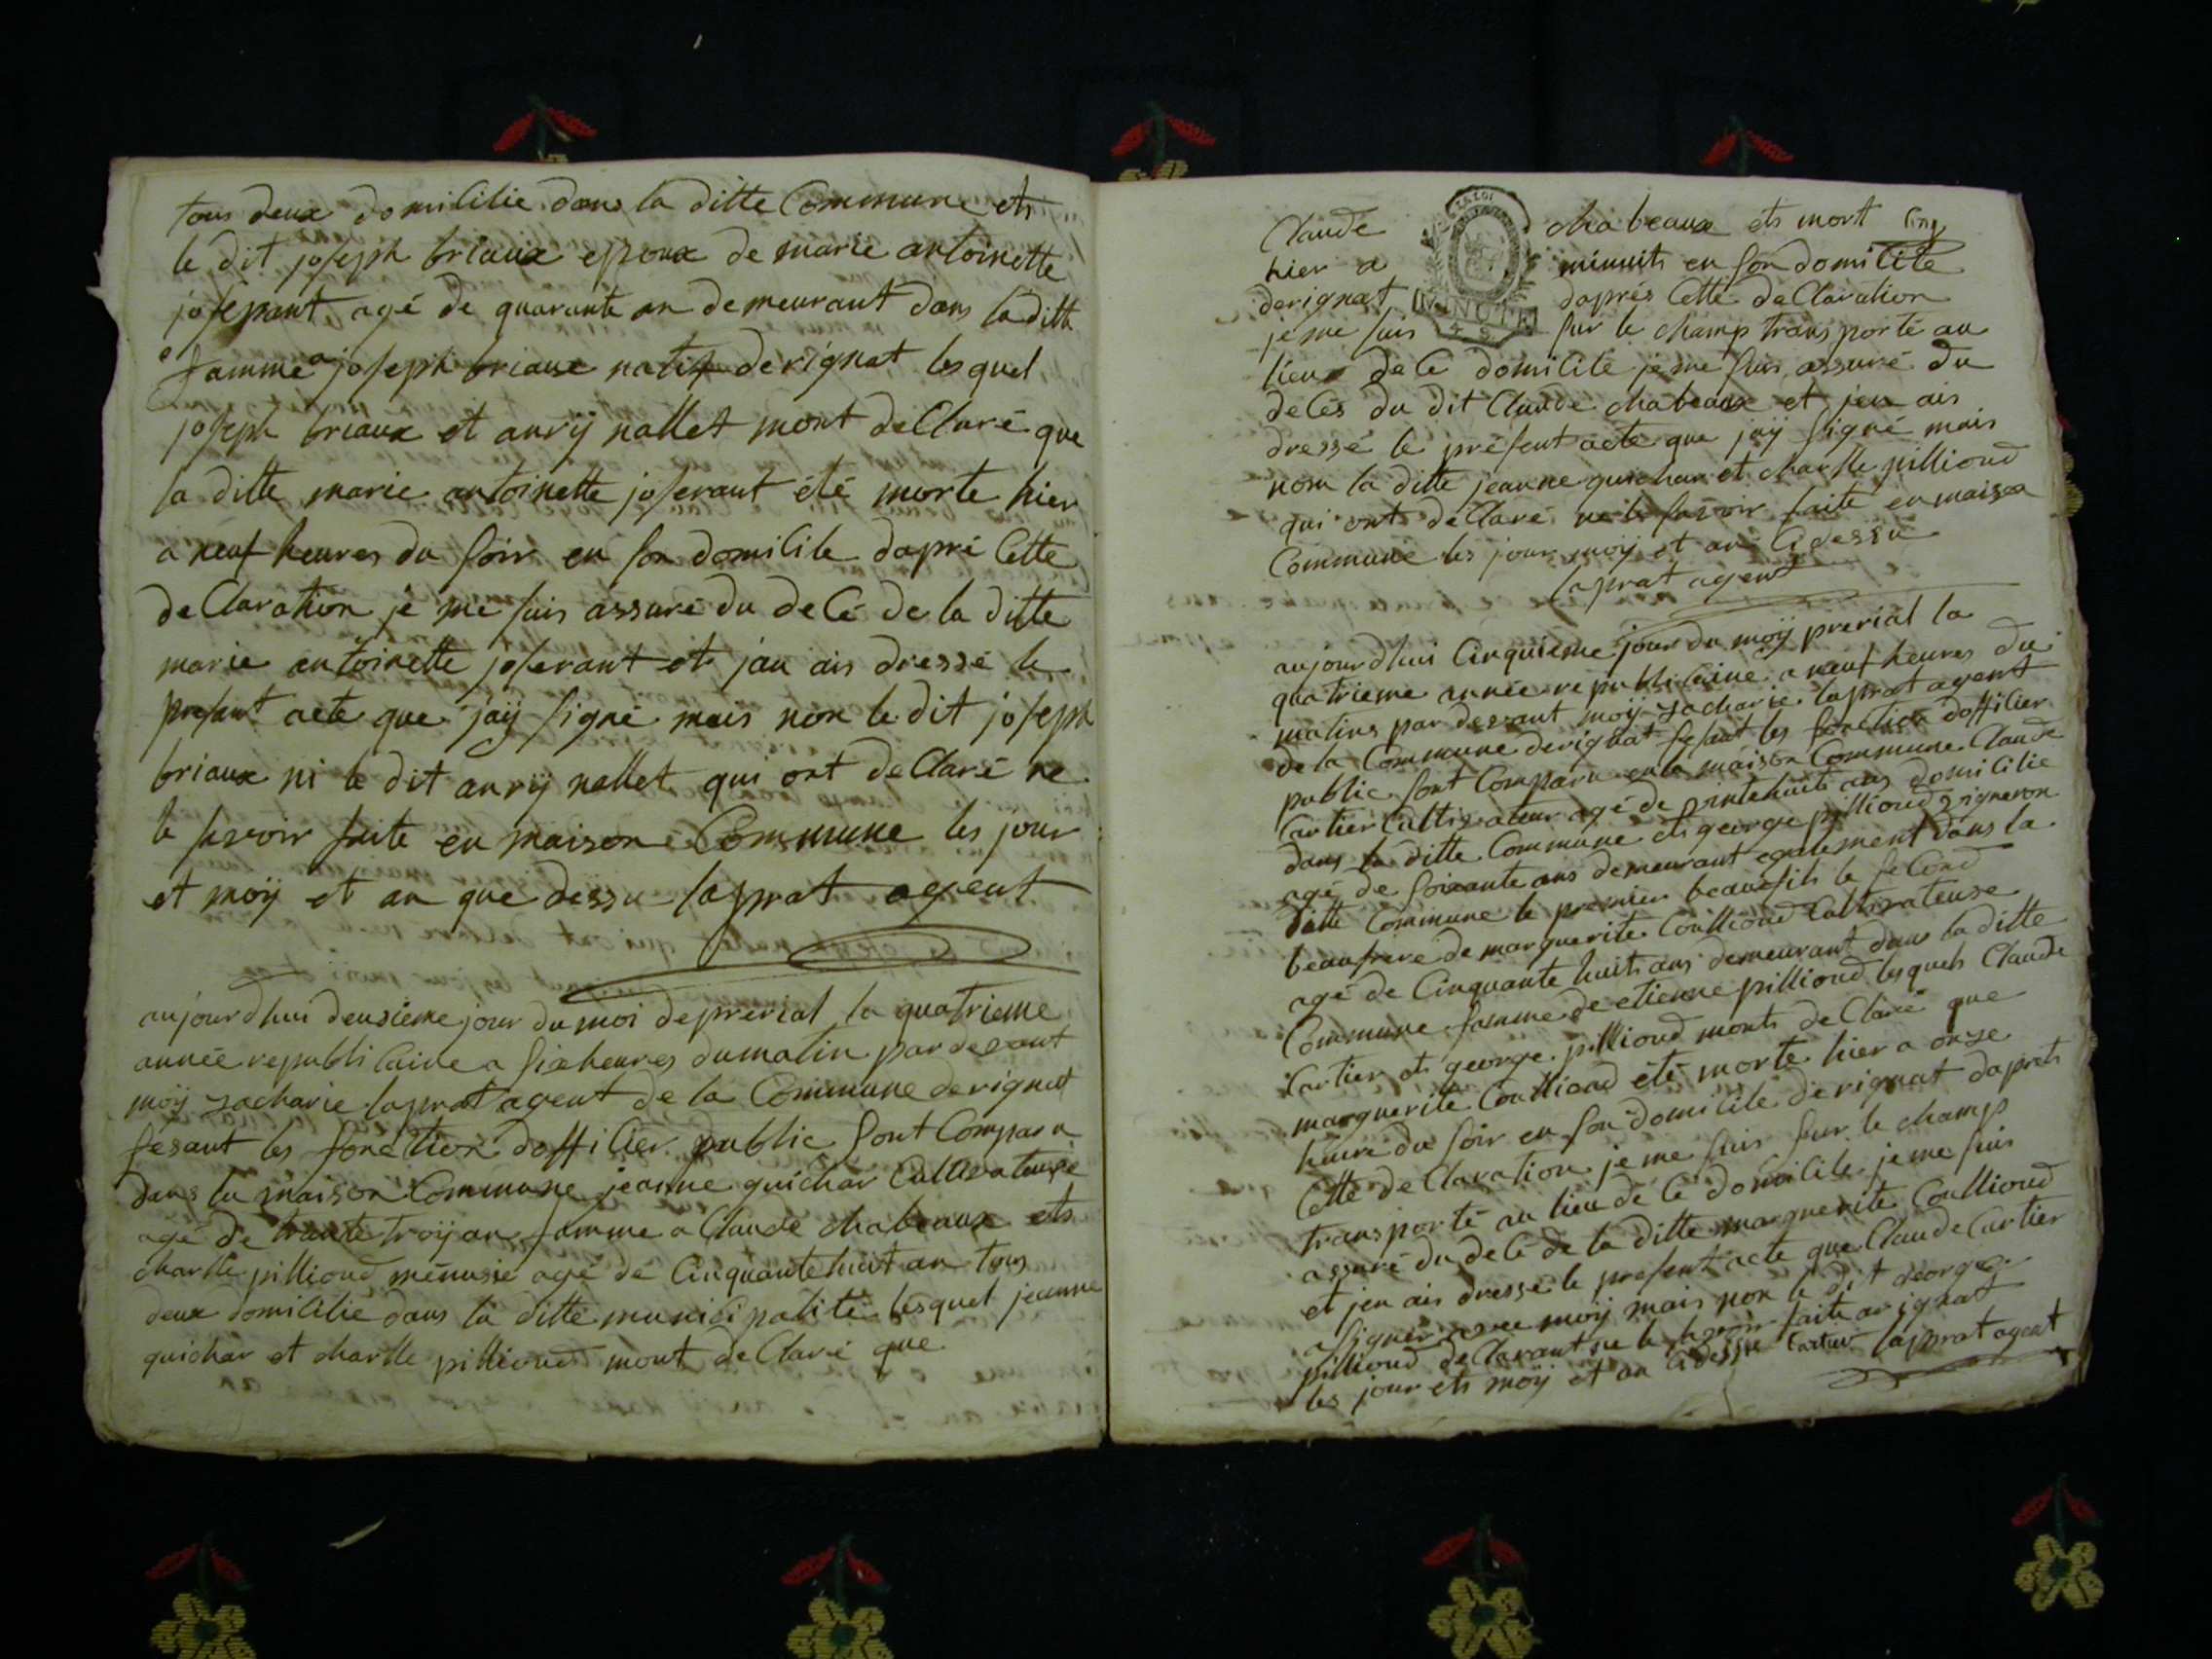 tous deux domicilie dans la ditte Commune et
le dit joseph briaux epoux de marie antoinette
joserant agé de quarante an demeurant dans la ditt
famme a joseph briaux natif de rignat lesquel
joseph briaux et anrÿ nallet mont deClaré que
la ditte marie antoinette joserant été morte hier
a neuf heures du soir en son domicile dapré Cette
deClaration je me suis assuré du decé de la ditte
marie antoinette joserant et jan ais dressé le
presant acte que jaÿ signé mais non le dit joseph
briaux ni le dit anrÿ nallet qui ont deClaré ne
le savoir faite en maison Commune les jour
et moÿ et an que dessu laprat agent
aujourdhui deusieme jour du moi de prerial la quatrieme
année republicaine a six heures du matin par devant
moÿ zacharie laprat agent de la Commune de rignat
fesant les fonction dofficier public sont Comparu
dans la maison Commune jeanne guichar Cultivateuse
agé de trante troÿ an famme a Claude chabeaux et
charlle pillioud ménusié agé de Cinquante huit an tous
deux domicilie dans la ditte municipalité lesquel jeanne
guichar et charlle pillioud mont deClaré que
Claude chabeaux et mort Cinq
hier a minuit en son domicile
derignat MINUTE daprés Cette deClaration
je me suis sur le champ transporté au
lieux de Ce domicile je me suis assuré du
deCés du dit Claude chabeaux et jen ais
dressé le présent acte que jaÿ signé mais
non la ditte jeanne guichar et charlle pillioud
qui ont deClaré ne le savoir faite en maison
Commune les jour moÿ et an Cidessu
laprat agent
aujourdhui Cinquieme jour du moÿ prerial la
quatrieme année republicaine a neuf heures du
matins par devant moÿ zacharie laprat agent
de la Commune derignat fesant les fonction dofficier
public sont Comparu en la maison Commune Claude
Cartier Cultivateur agé de vintehuite ans domicilie
dans la ditte Commune et george pillioud vigneron
agé de soixante ans demeurant egalement dans la
ditte Commune le premier beaufils le seCond
beaufrere de marguerite Coullioud Cultivateuse
agé de Cinquante huit ans demeurant dans la ditte
Commune famme de etienne pillioud lesquels Claude
Cartier et george pillioud monts deClaré que
marguerite Coullioud été morte hier a onze
heure du soir en son domicile de rignat daprets
Cette deClaration je me suis sur le champ
transporté au lieu de Ce domicile je me suis
assuré du deCé de la ditte marguerite Coullioud
et jen ais dressé le present acte que Claude Cartier
a signer avec moÿ mais non le dit george
pillioud deClarant ne le savoir faite a rignat
les jour et moÿ et an Cidessu Cartier laprat agent